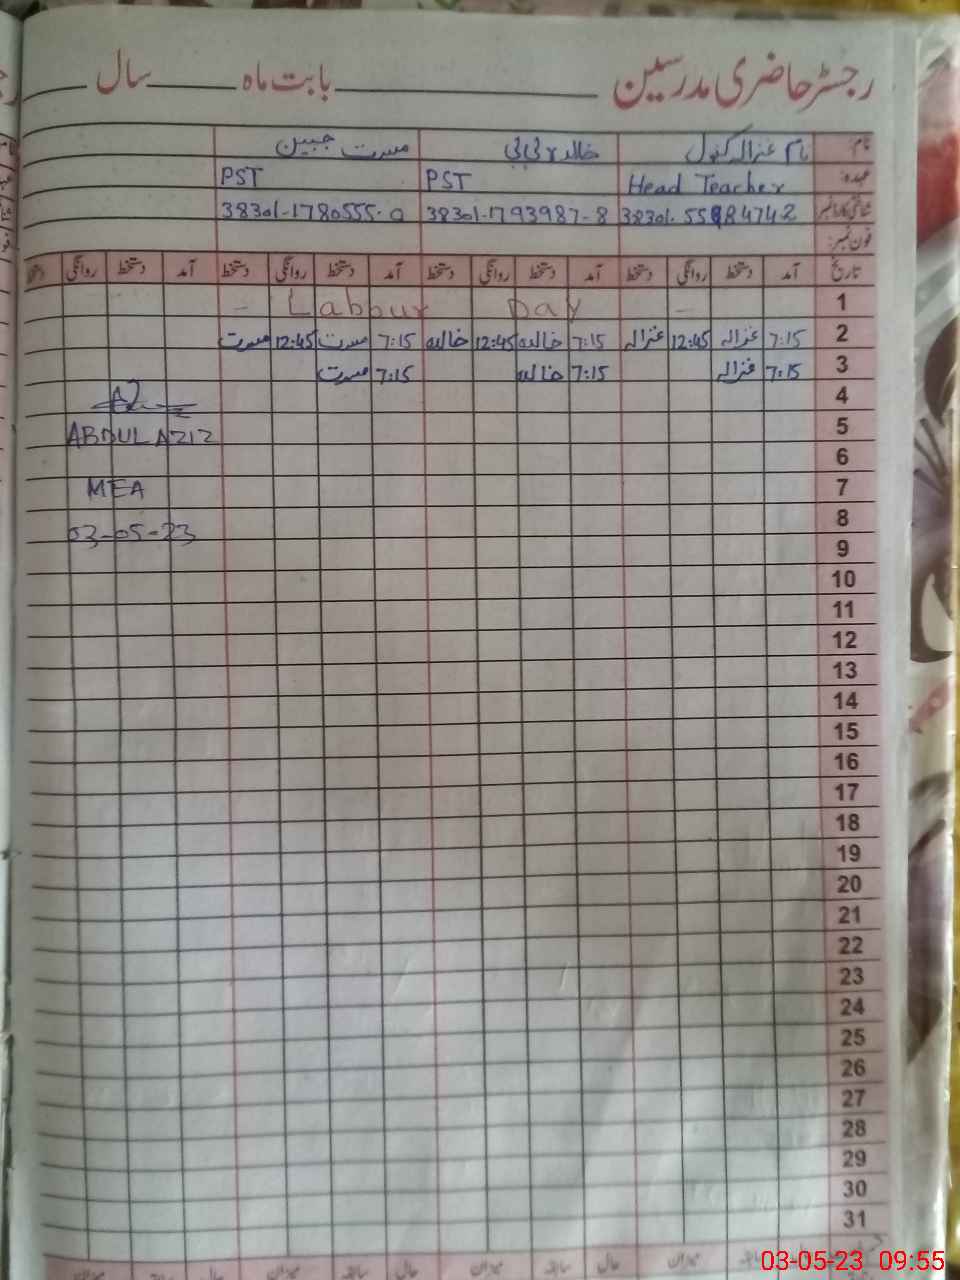 رجسٹر حاضری مدرسین بابت ماہ سال
نام: نام غزالہ کنول خالدہ بی بی مسرت جبین
عہدہ: Head Teacher PST PST
شناختی کارڈ نمبر 38301-1793987-8 38301-1780555-0
فون نمبر:
تاریخ آمد دستخط روانگی دستخط آمد دستخط روانگی دستخط آمد دستخط روانگی دستخط آمد دستخط روانگی دستخط
1 - Labour Day -
2 7:15 غزالہ 12:45 غزالہ 7:15 خالدہ 12:45 خالدہ 7:15 مسرت 12:45 مسرت
3 7:15 غزالہ 7:15 خالدہ 7:15 مسرت
4
5 ABDUL AZIZ
6
7 MEA
8 03-05-23
9
10
11
12
13
14
15
16
17
18
19
20
21
22
23
24
25
26
27
28
29
30
31
حال سابقہ میزان حال سابقہ میزان حال سابقہ میزان
03-05-23 09:55